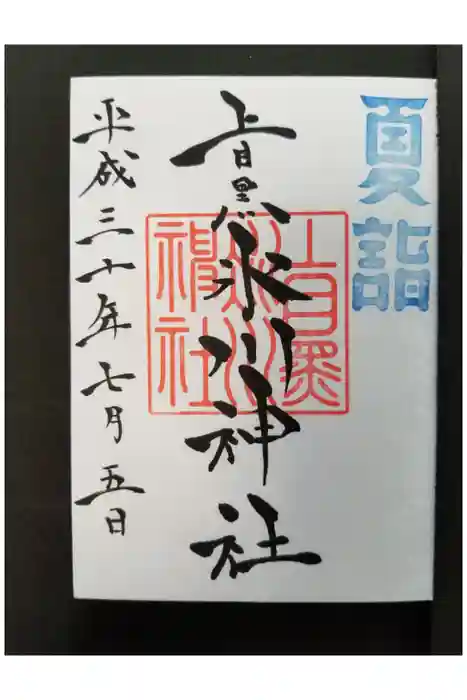 夏詣
上目黒氷川神社
上目黒氷川神社
平成三十年七月五日